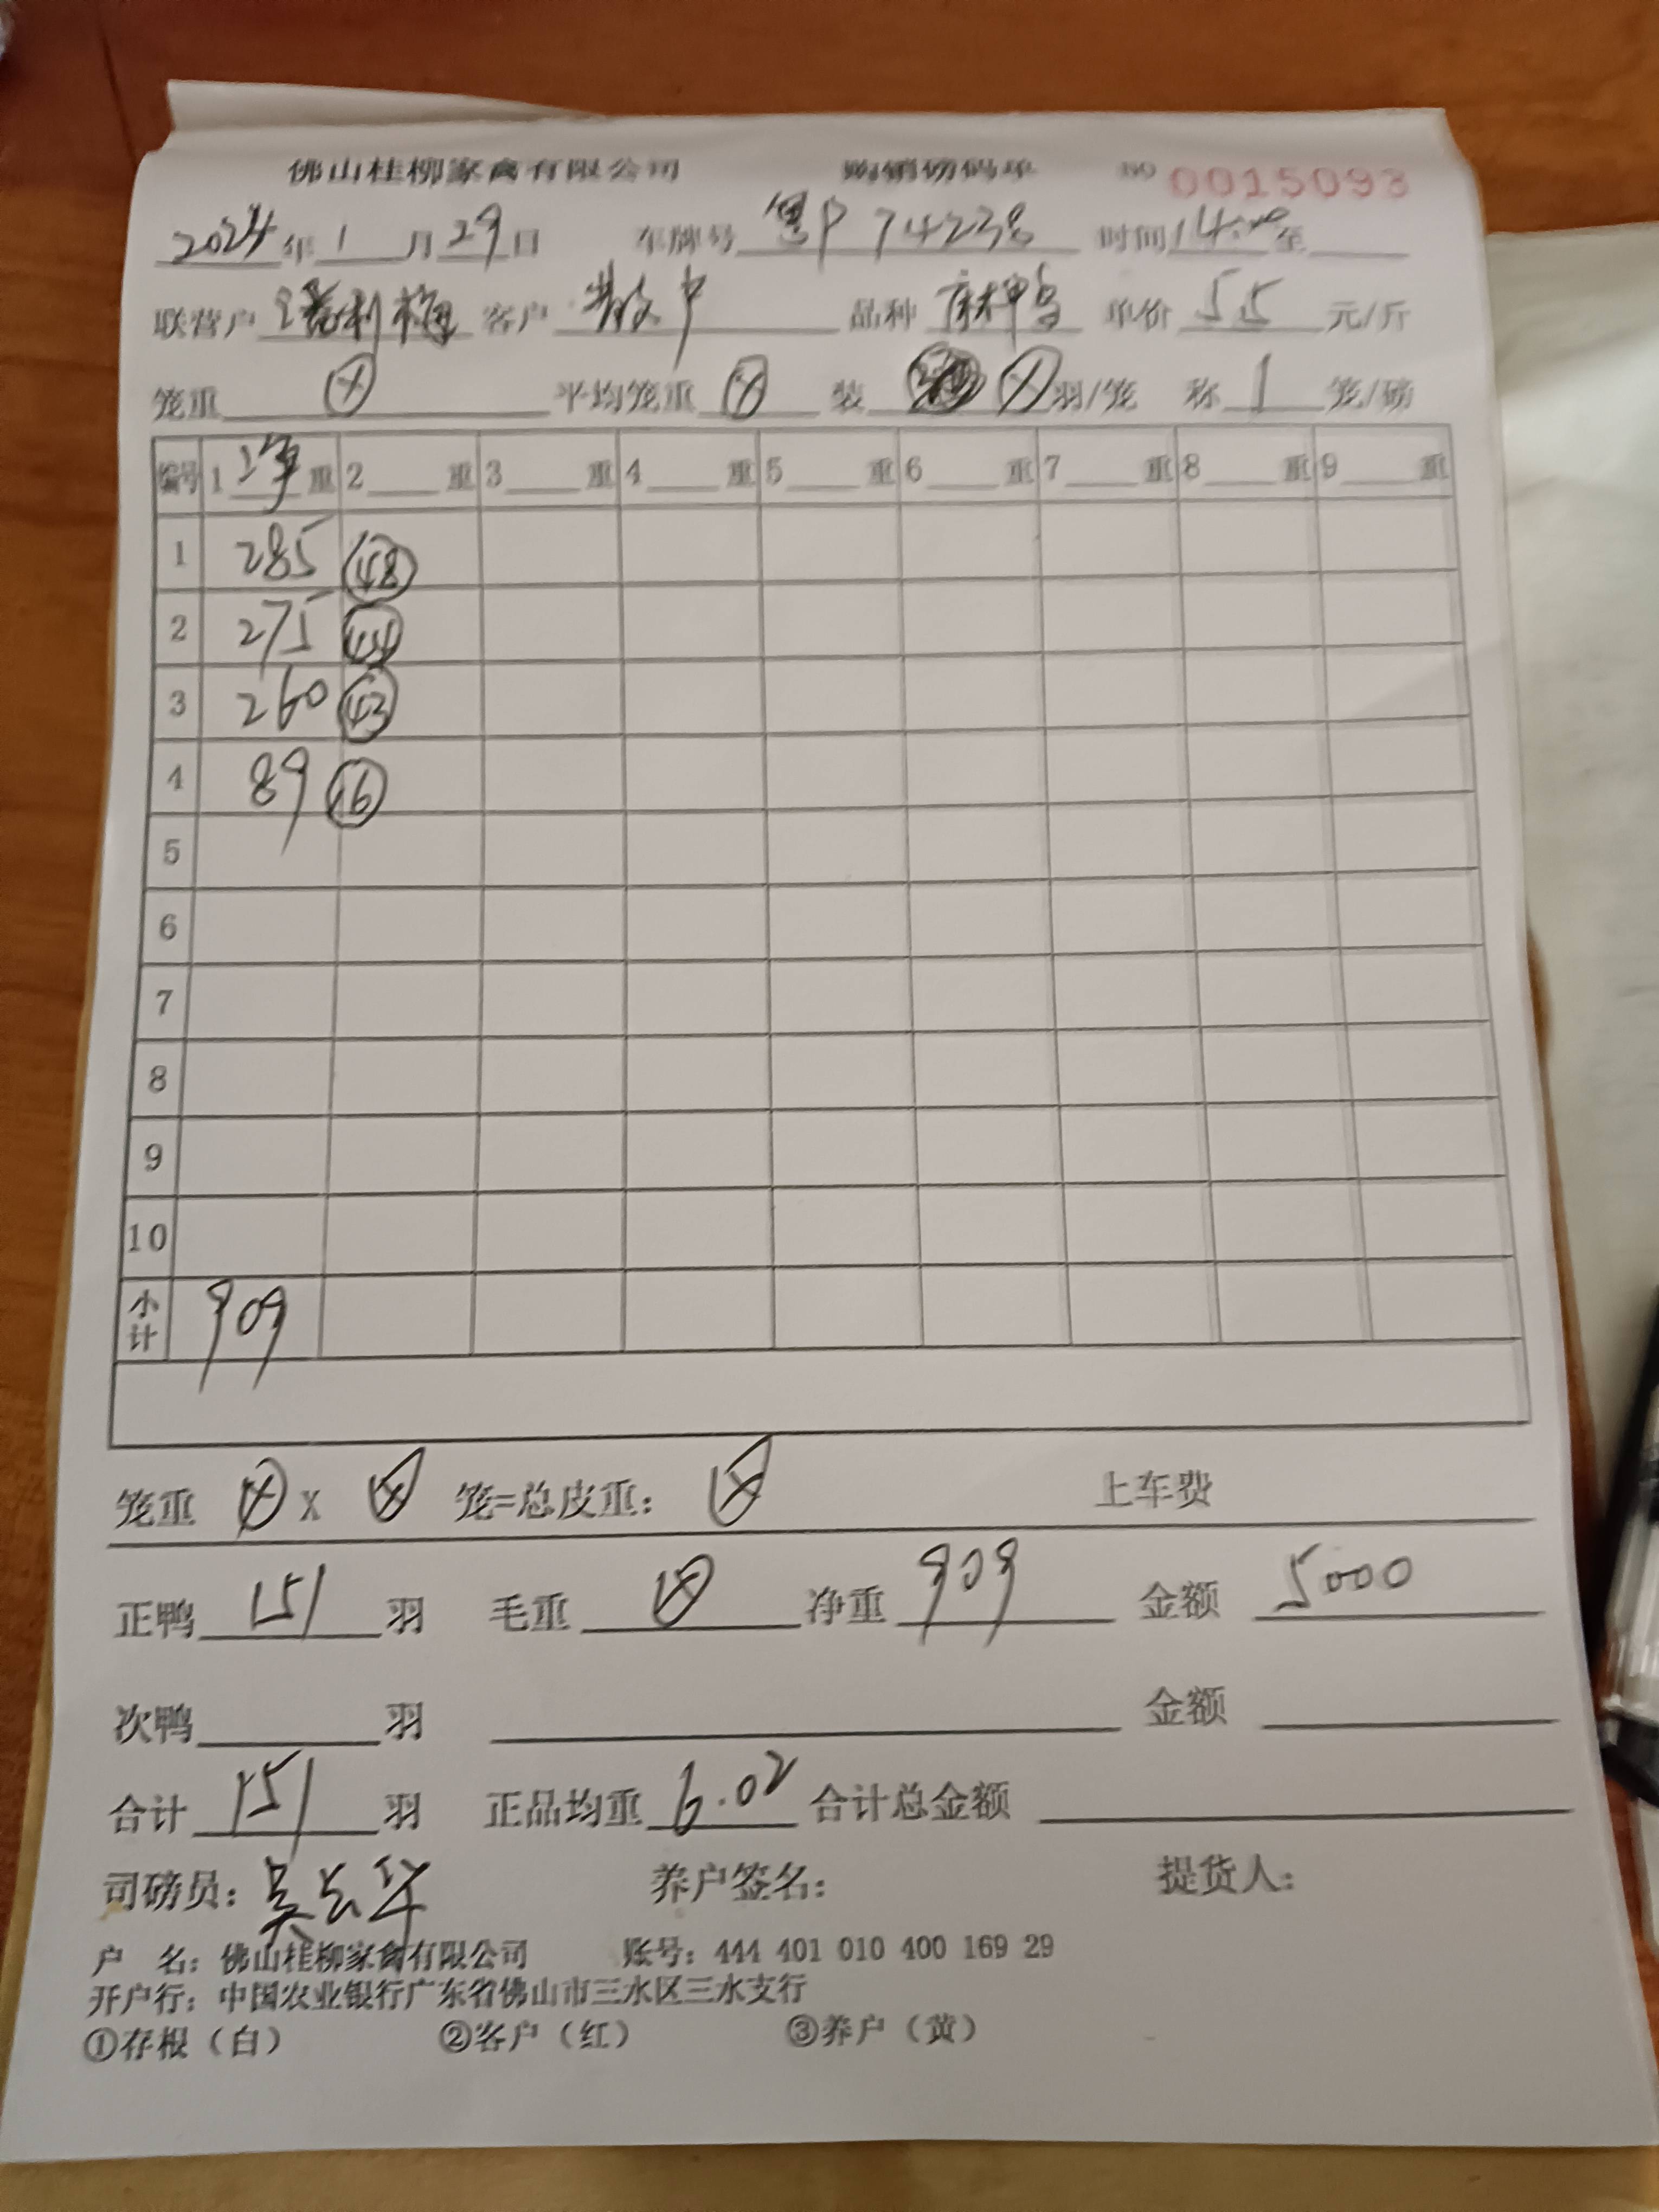 佛山桂柳家禽有限公司 购销磅码单 NO 0015093
2024年1月29日 车牌号 粤P 74238 时间14:00至
联营户 利梅 客户 散户 品种 麻鸭 单价 5.5 元/斤
笼重 ⊗ 平均笼重 ⊗ 装 ⊗ 羽/笼 称 1 笼/磅
编号 1 净 重 2 重 3 重 4 重 5 重 6 重 7 重 8 重 9 重
1 285 48
2 275 44
3 260 43
4 89 16
5
6
7
8
9
10
小计 909
笼重 ⊗ X ⊗ 笼=总皮重: ⊗ 上车费
正鸭 151 羽 毛重 ⊗ 净重 909 金额 5000
次鸭 羽 金额
合计 151 羽 正品均重 6.02 合计总金额
司磅员: 吴 华 养户签名: 提货人:
户 名: 佛山桂柳家禽有限公司 账号: 444 401 010 400 169 29
开户行: 中国农业银行广东省佛山市三水区三水支行
①存根(白) ②客户(红) ③养户(黄)